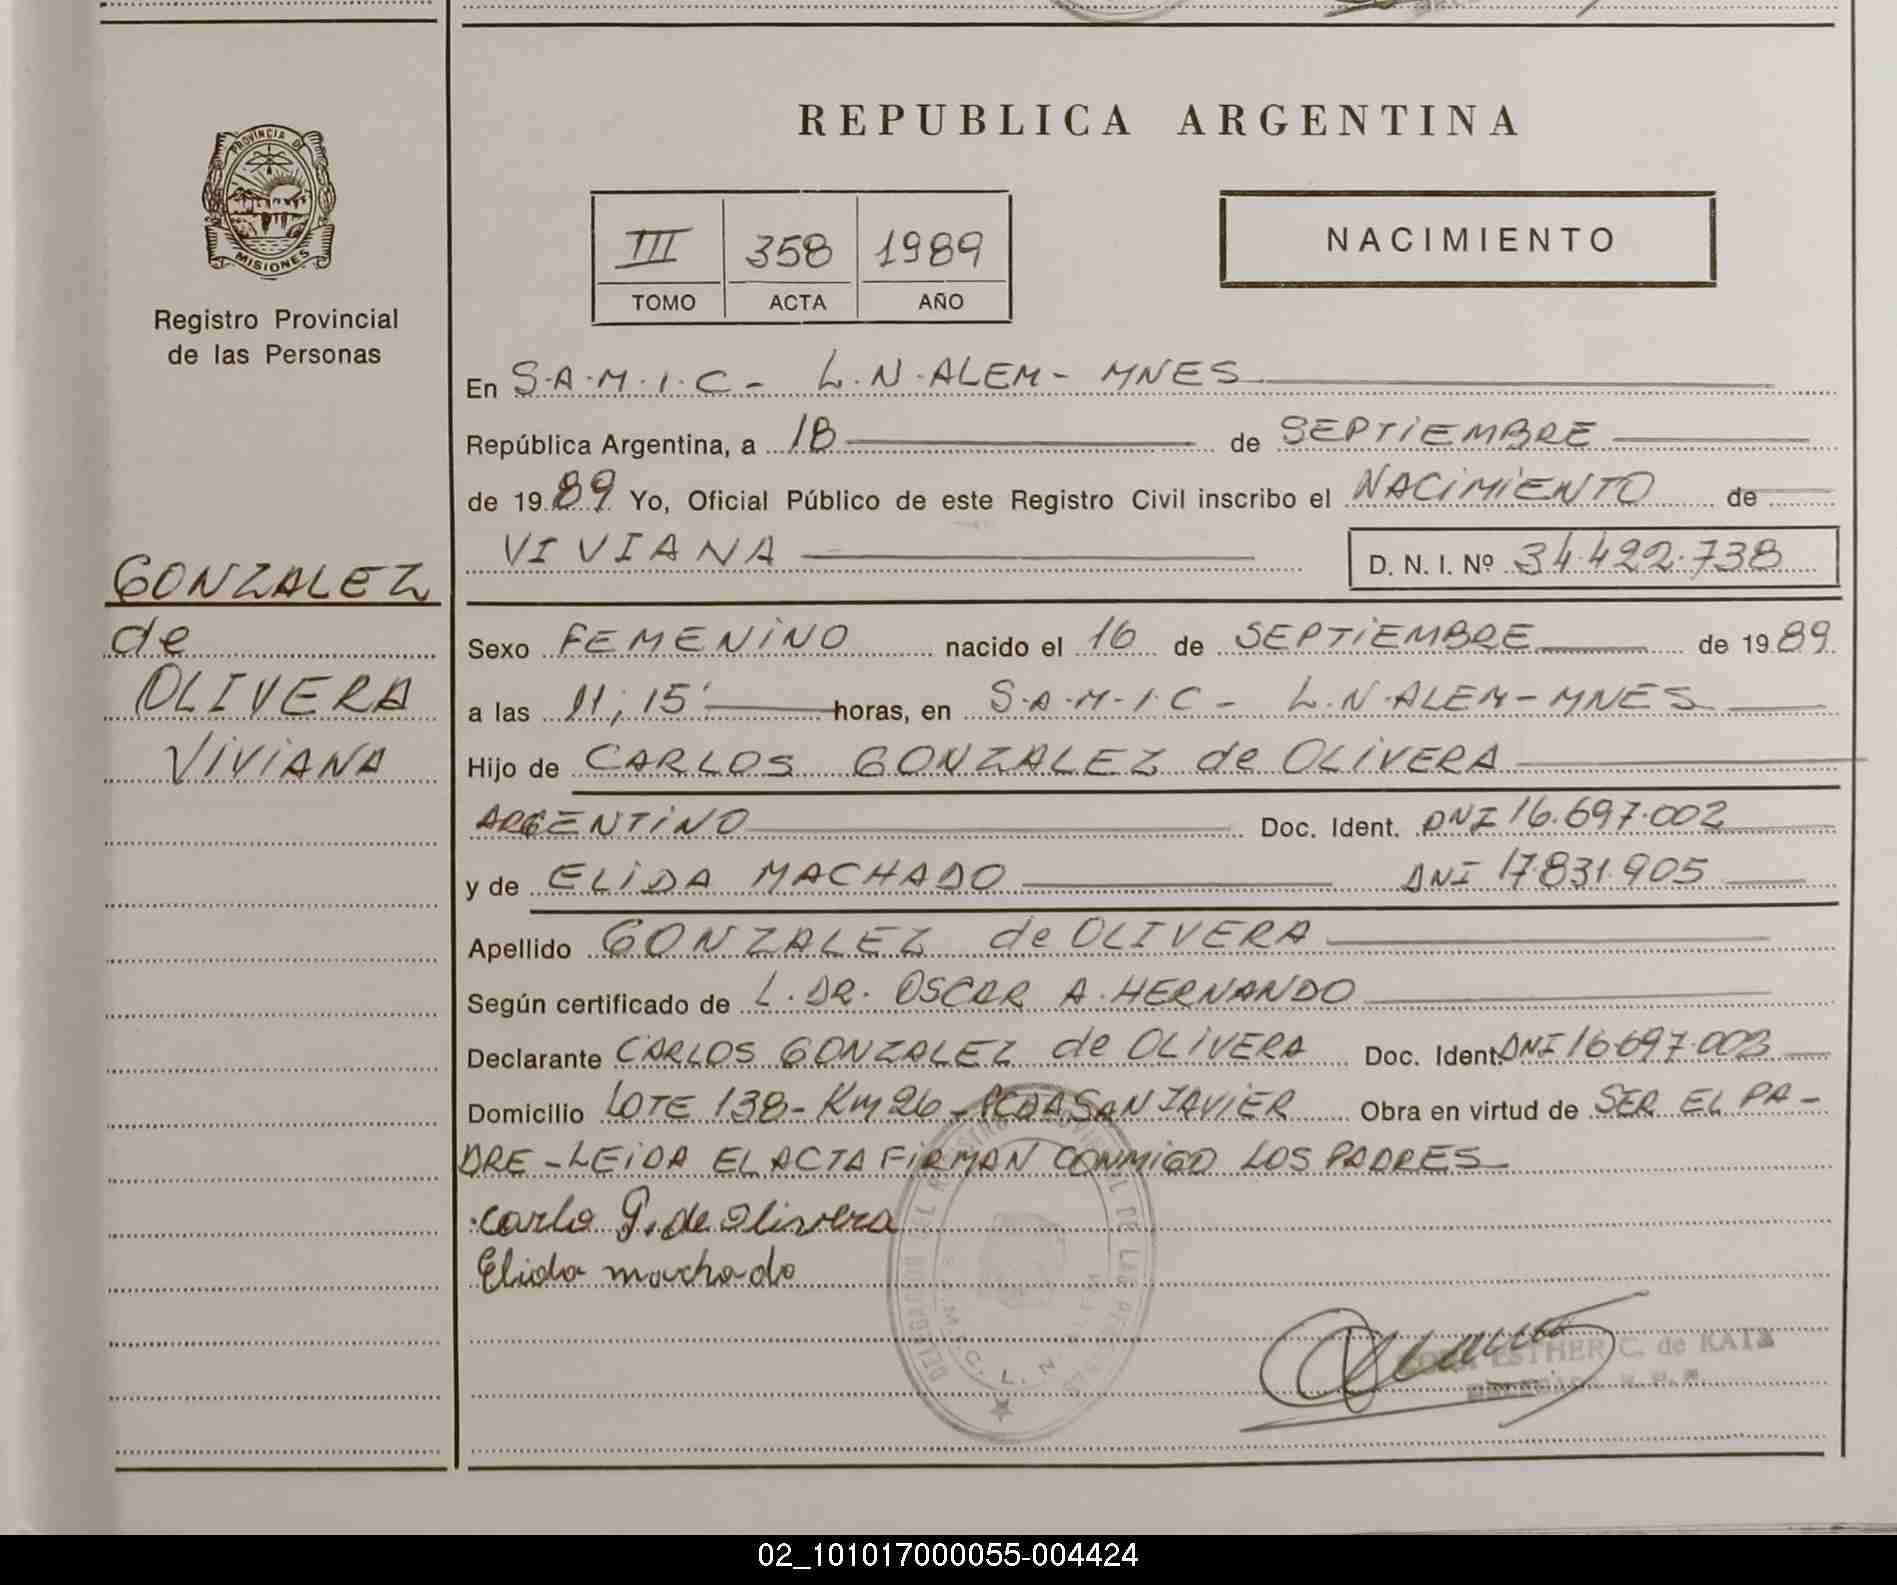 REPUBLICA ARGENTINA
PROVINCIA DE
MISIONES
Registro Provincial
de las Personas
III 358 1989
TOMO ACTA AÑO
NACIMIENTO
En S.A.M.I.C- L.N.ALEM- MNES
República Argentina, a 18 de SEPTiEMBRE
de 1989 Yo, Oficial Público de este Registro Civil inscribo el NACiMiENTO de
VIVIANA D. N. I. Nº 34.422.738
GONZALEZ
de
OLIVERA
ViViANA
Sexo FEMENiNO nacido el 16 de SEPTiEMBRE de 1989
a las 11,15' horas, en S.A.M-I.C- L.N.ALEM-MNES
Hijo de CARLOS GONZALEZ de OLiVERA
ARGENTiNO Doc. Ident. DNI 16.697.002
y de ELiDA MACHADO DNI 17831.905
Apellido GONZALEZ de OLIVERA
Según certificado de L. DR. OSCAR A. HERNANDO
Declarante CARLOS GONZALEZ de OLiVERA Doc. Ident. DNI 16.697.002
Domicilio LOTE 138- Km 26 - PCDA SAN JAViER Obra en virtud de SER EL PA-
DRE-LEiDA EL ACTA FiRMAN CONMiGO LOS PADRES
Carlo G. de Olivera
Elida machado
ESTHER C. de KATZ
02_101017000055-004424